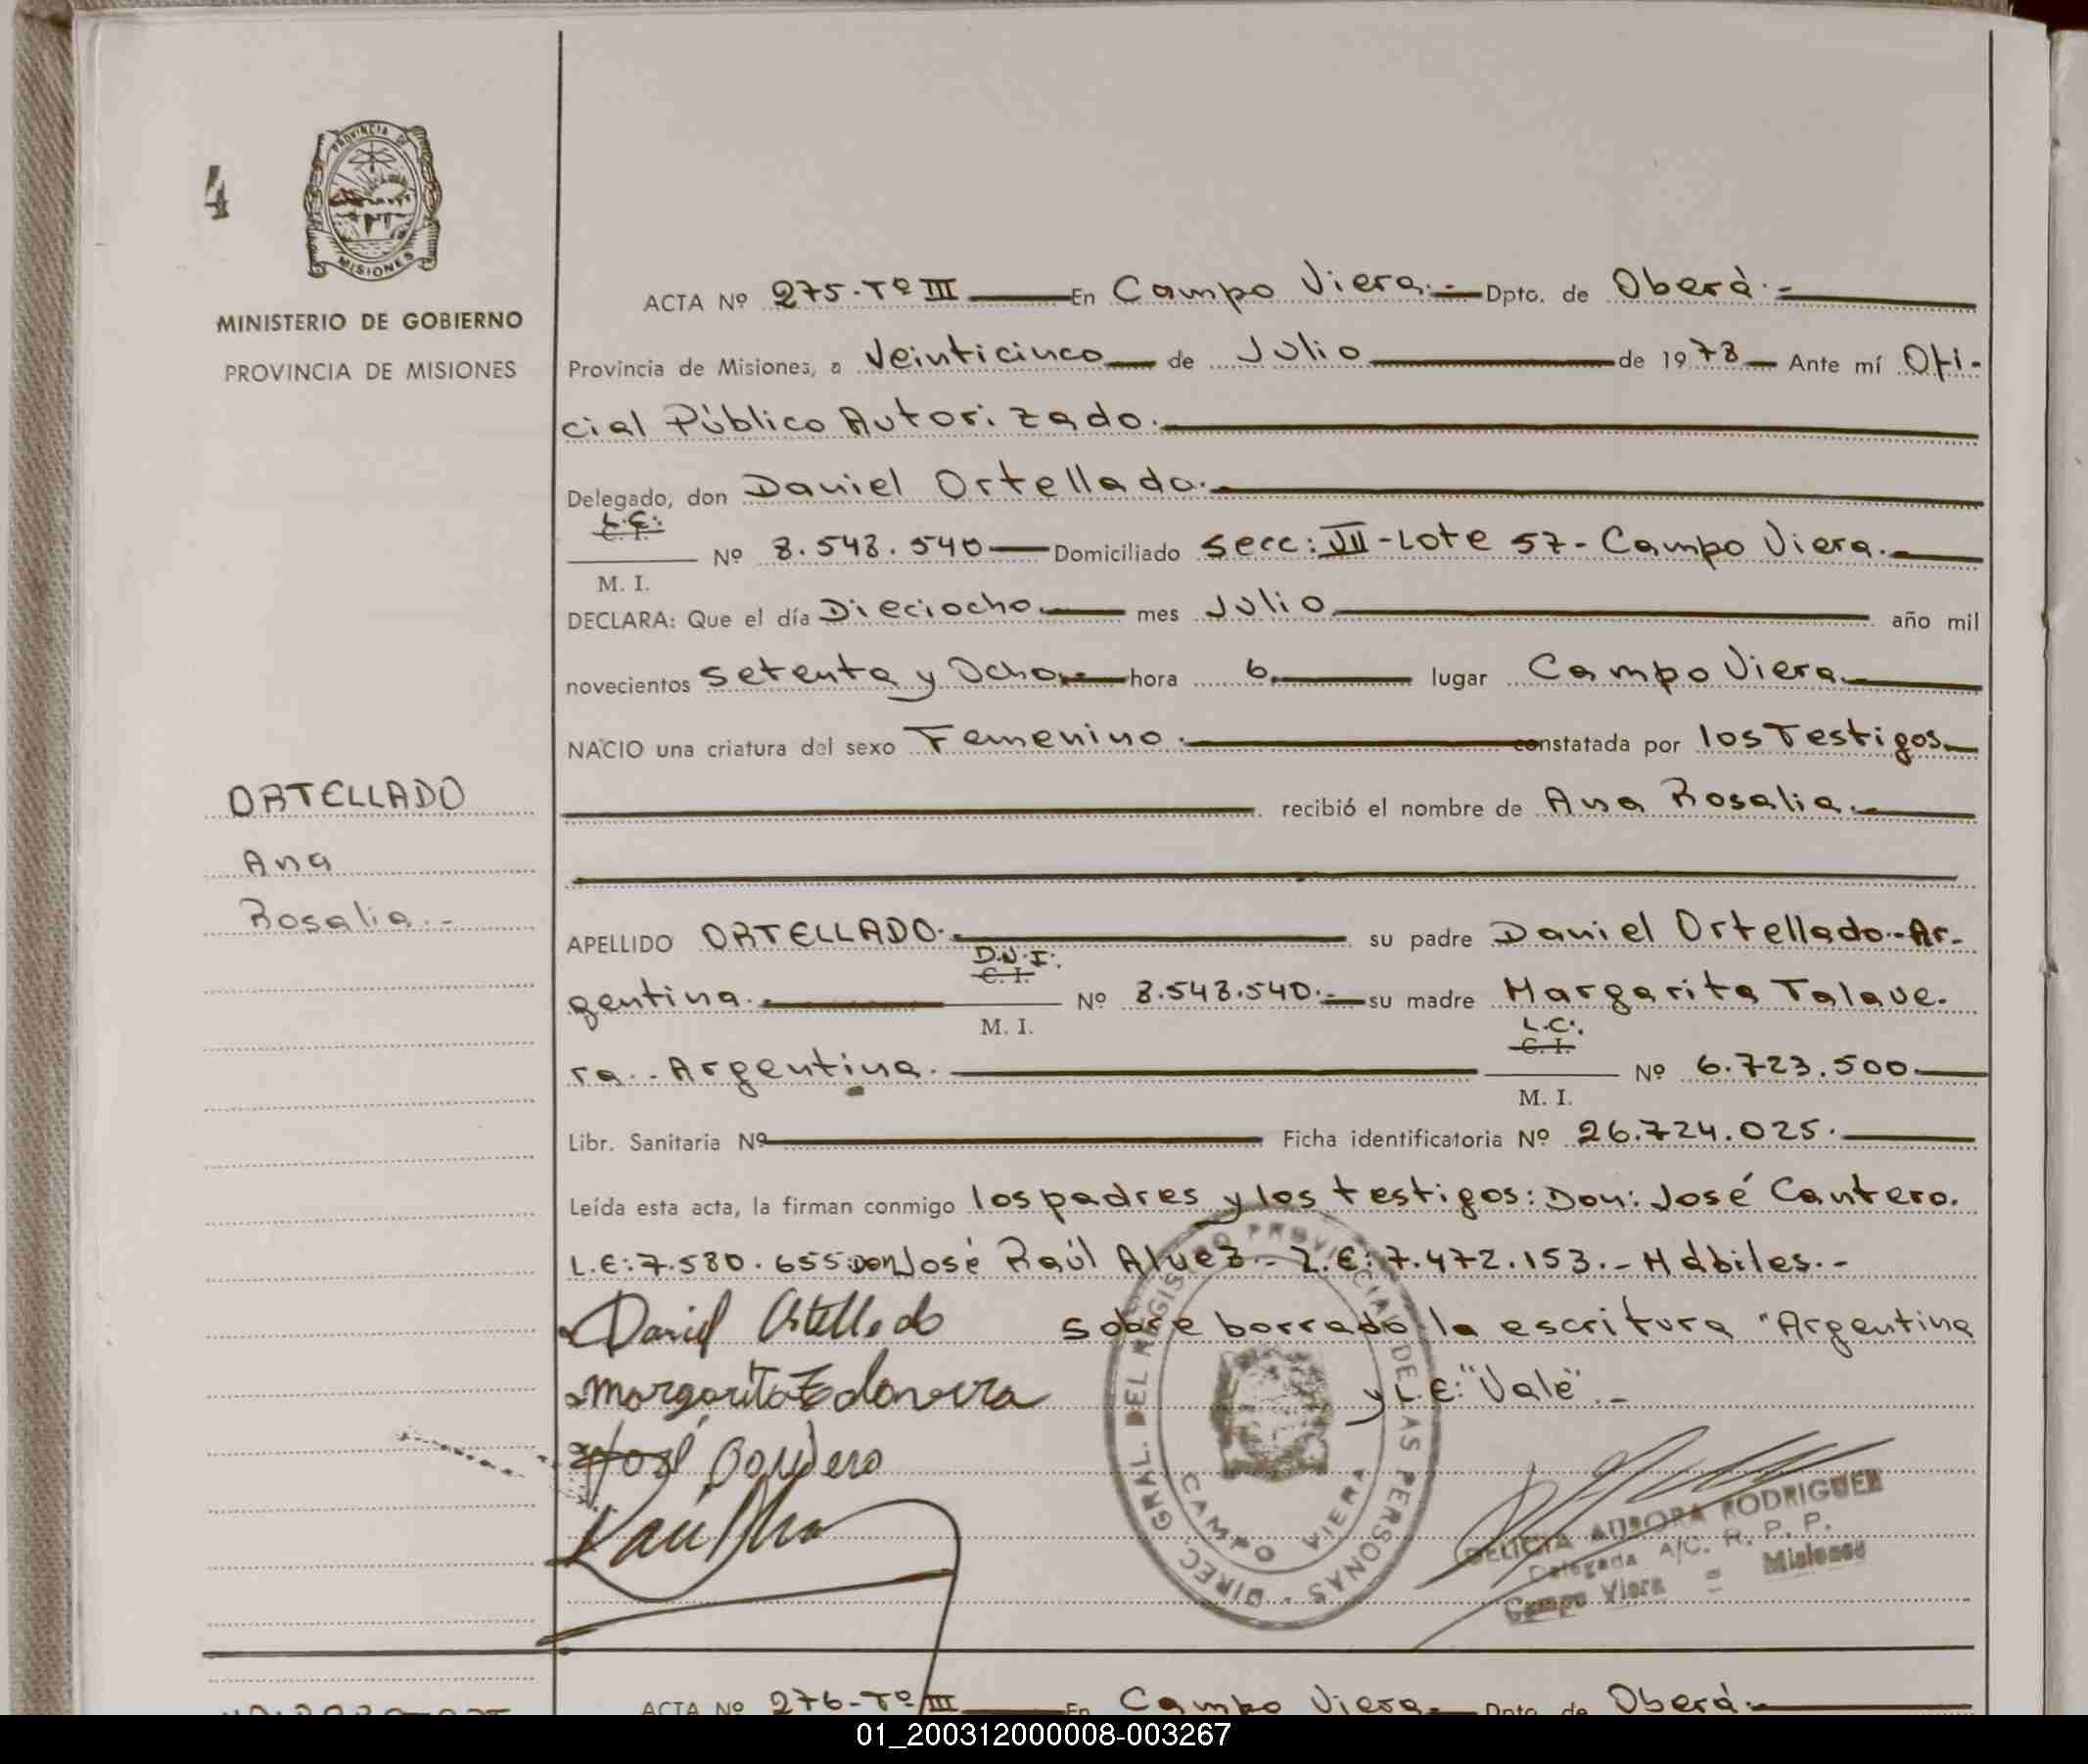 4
PROVINCIA DE
MISIONES
MINISTERIO DE GOBIERNO
PROVINCIA DE MISIONES
ORTELLADO
Ana
Rosalia.-
ACTA Nº 275-Tº III En Campo Viera.- Dpto. de Oberá.-
Provincia de Misiones, a Veinticinco de Julio de 1978 Ante mí Ofi-
cial Público Autorizado.
Delegado, don Daniel Ortellado.
L.E:
C. I.
Nº 8.548.540 Domiciliado Secc: VII-Lote 57- Campo Viera.
M. I.
DECLARA: Que el día Dieciocho mes Julio año mil
novecientos Setenta y Ocho hora 6. lugar Campo Viera
NACIO una criatura del sexo Femenino. constatada por los Testigos
recibió el nombre de Ana Rosalia.
APELLIDO ORTELLADO. su padre Daniel Ortellado.-Ar-
D.N.I:
C. I.
gentina. Nº 8.548.540.- su madre Margarita Talave-
M. I.
L.C:
C. I.
ra.- Argentina. Nº 6.723.500
M. I.
Libr. Sanitaria Nº Ficha identificatoria Nº 26.724.025.
Leída esta acta, la firman conmigo los padres y los testigos: Don: José Cantero.
L.E:7.580.655 Don José Raúl Alvez.- L.E:7.472.153.- Hábiles.-
Daniel Ortellado sobre borrado la escritura "Argentina
y L.E:"Vale".-
José
DIREC. GRAL. DEL REGISTRO PROVINCIAL DE LAS PERSONAS -
CAMPO VIERA
DELICIA AURORA RODRIGUEZ
Delegada A/C. R. P. P.
Campo Viera = Misiones
ACTA Nº 276-Tº III En Campo Viera Dpto. de Oberá.
01_200312000008-003267